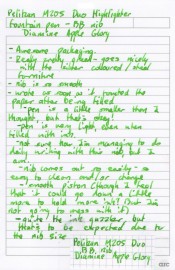 Pelikan M205 Duo Highlighter
fountain pen - BB nib
Diamine Apple Glory
- Awesome packaging.
- Really pretty - goes nicely
with the silver coloured / steel
furniture
- nib is so smooth
- wrote as soon as it touched the
paper after being filled
- pen is a little smaller than I
thought, but that's okay!
- pen is very light, even when
filled with ink.
- not sure how I'm managing to do
daily writing with this nib, but I
am!
- nib comes out so easily - so
easy to clean and/or change
- smooth piston though I feel
that it could go down a little
more to hold more ink! But I'm
not going to mess with it.
- quite the ink guzzler, but
that's to be expected due to
the nib size
Pelikan M205 Duo
BB nib,
Diamine Apple Glory